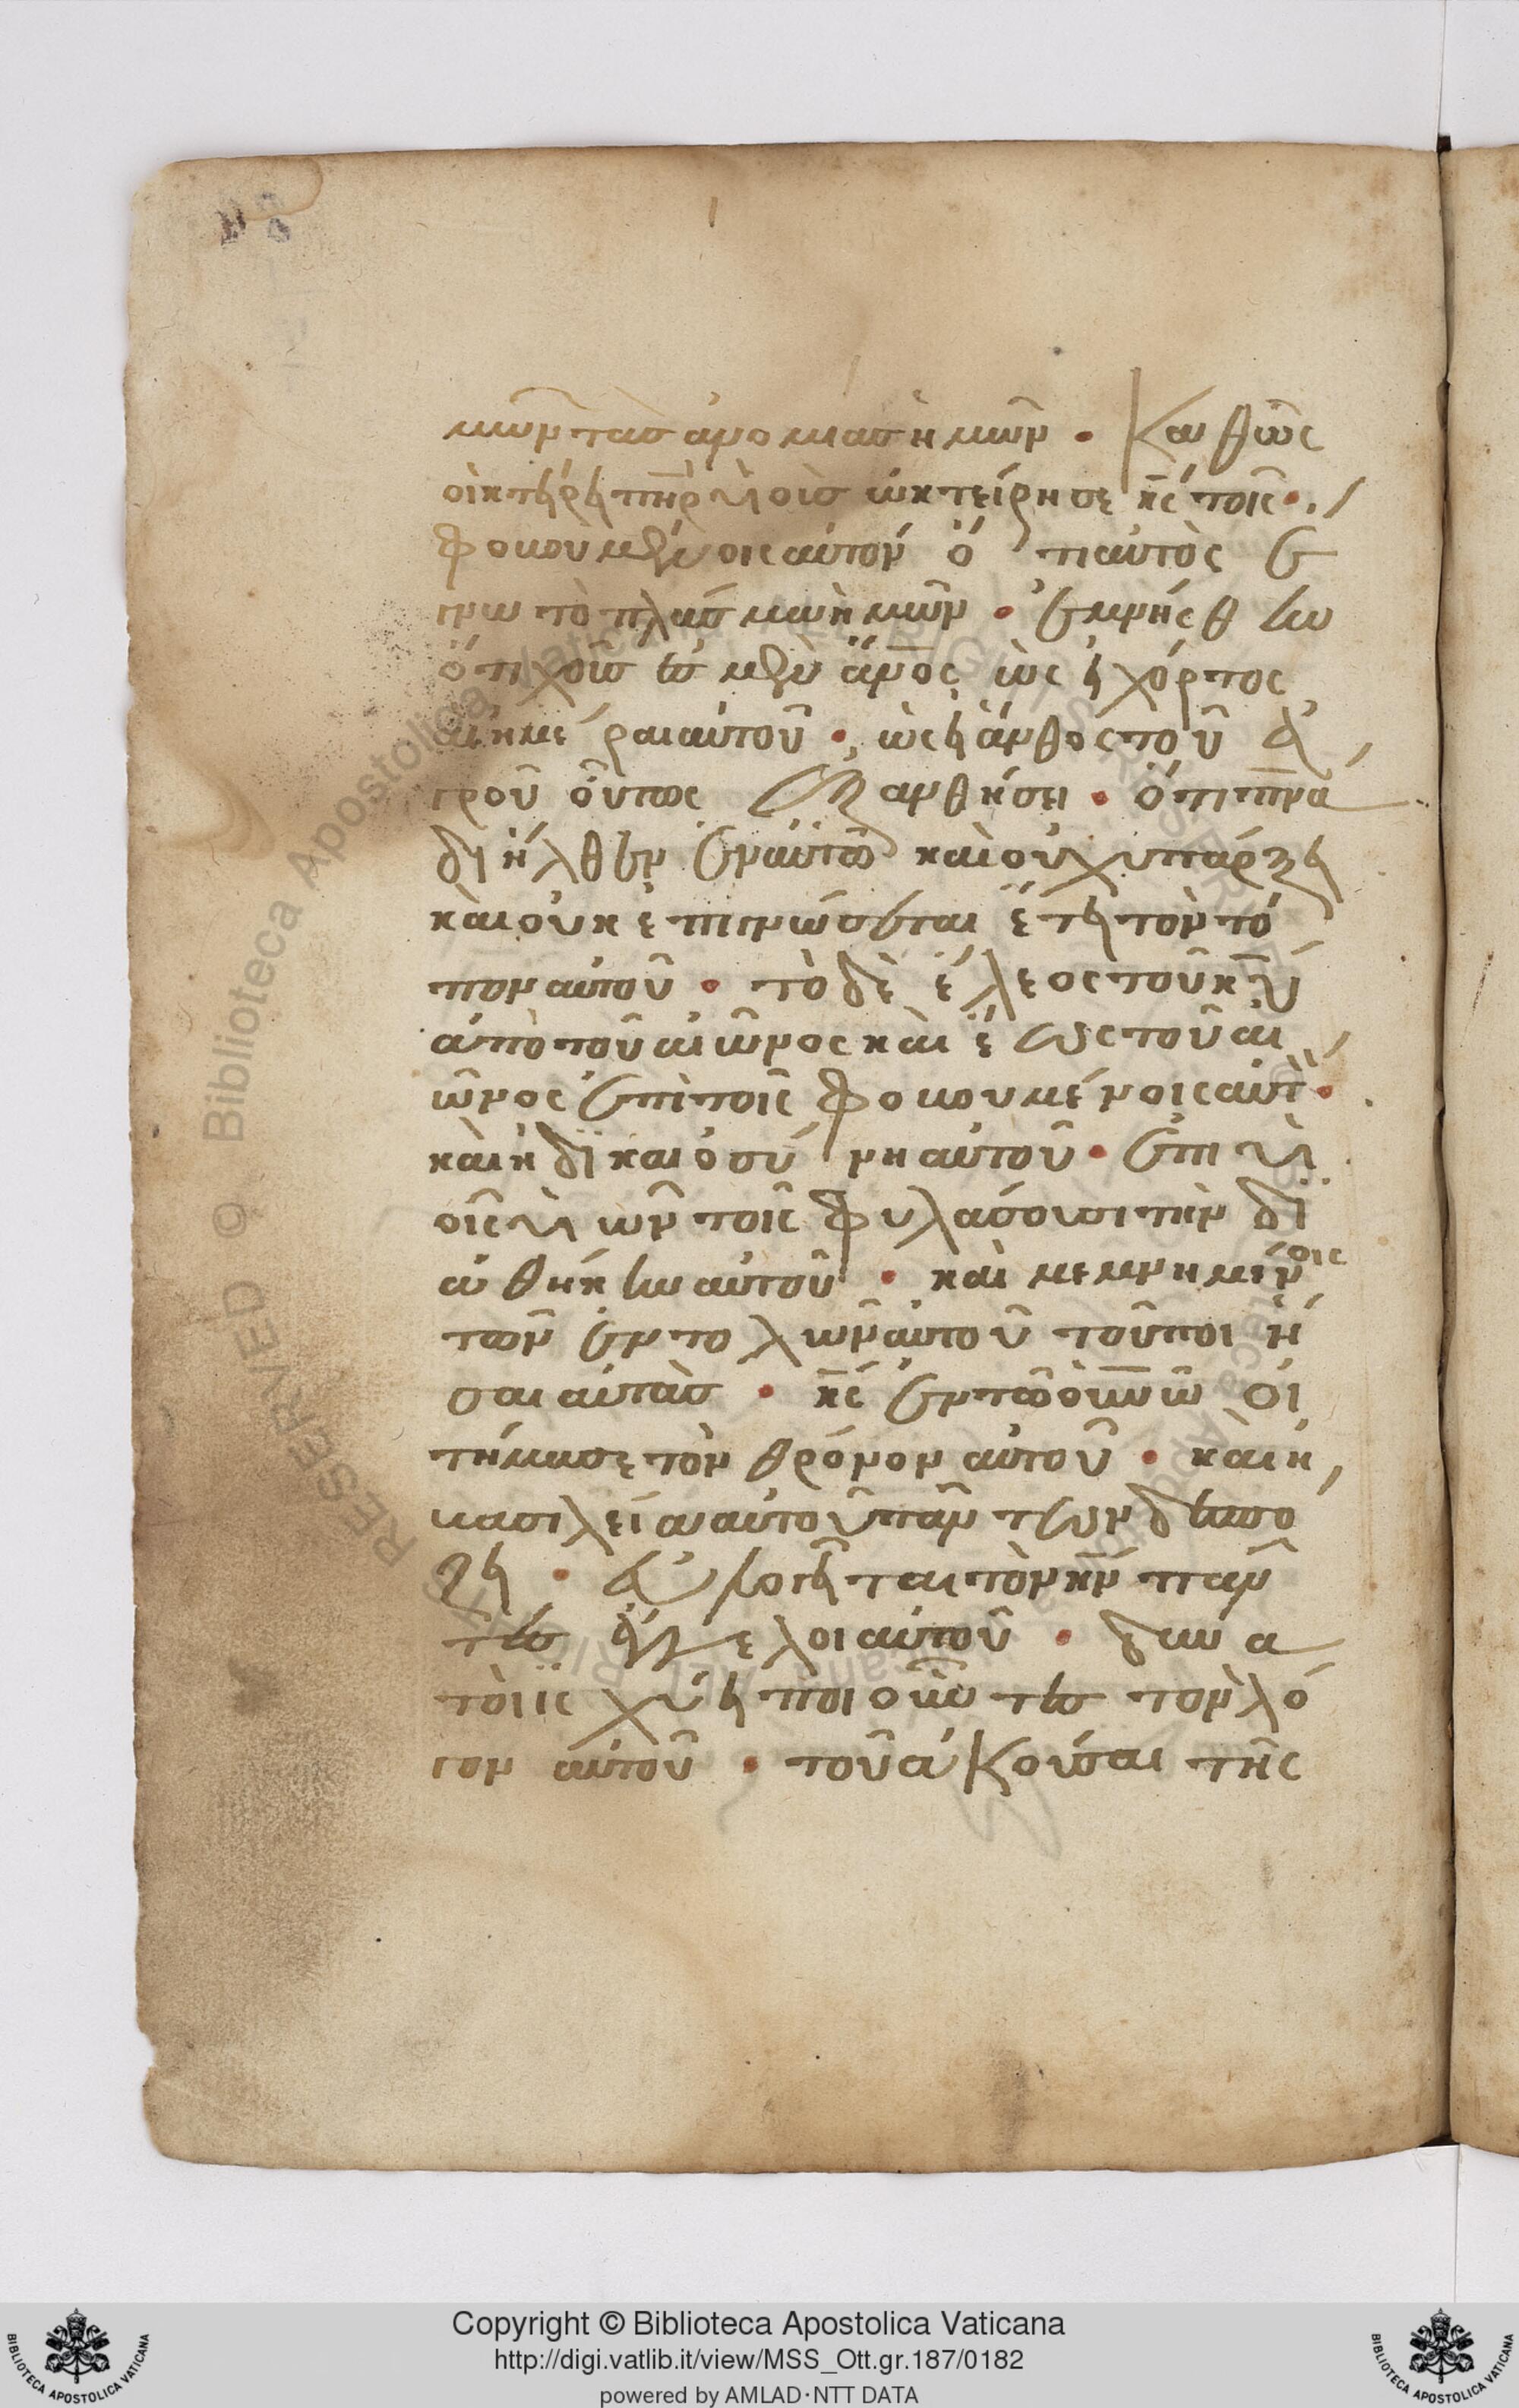 μῶν τὰσ ἀνομιασ ἡμῶν · Καθῶς
οἰκτήρει πηρ υἱοὺσ ὠκτείρησε κς τοῖς ·
φοβουμένοις αὐτόν ὅτι αὐτὸς ἔ
γνω τὸ πλάσμα ἡμῶν · ἐμνήσθην
ὅτι χοῦσ ἐσμέν ἄνος ὡς εἰ χόρτος
αἱ ἡμέραι αὐτοῦ · ὡς εἰ ἄνθος τοῦ ἀ
γροῦ οὕτως ἐξανθήσει · ὅτι πνα
διῆλθεν ἐν αὐτῶ καὶ οὐχ υπάρξει
καὶ οὐκ ἐπιγνώσεται ἔτει τὸν τό
πον αὐτοῦ · τὸ δὲ ἔλεος τοῦ κυ
ἀπὸ τοῦ αἰῶνος καὶ ἕως τοῦ αἰ
ῶνος ἐπὶ τοῖς φοβουμένοις αὐτ ·
καὶ ἡ δικαιοσύνη αὐτοῦ · ἐπι υἱ
οῖς υἱων τοῖς φυλάσσουσι τὴν δι
αθήκην αὐτοῦ · καὶ μεμνημένοις
τῶν ἐντολῶν αὐτοῦ τοῦ ποιῆ
σαι αὐτὰσ · κς ἐν τῶ οὐνῶ οἱ
τήμασε τὸν θρόνον αὐτοῦ · καὶ ἡ
βασιλεία αὐτοῦ πάντων δεσπό
ζει · εὐλογεῖται τὸν κν πάν
τεσ ἄγγελοι αὐτοῦ · δυνα
τοὶ ϊσχύει ποιοῦντεσ τὸν λό
γον αὐτοῦ · τοῦ ἀκοῦσαι τῆς
Copyright © Biblioteca Apostolica Vaticana
http://digi.vatlib.it/view/MSS_Ott.gr.187/0182
powered by AMLAD·NTT DATA